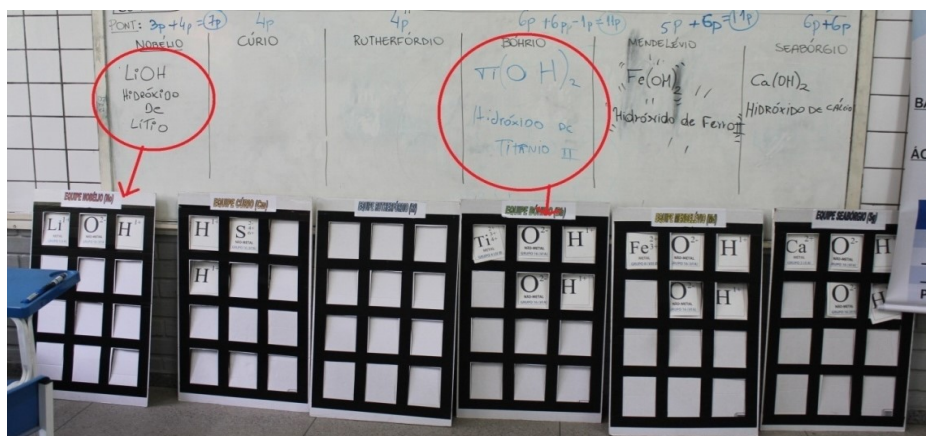 PONT: 3p + 4p = 7p
4p
4p
6p + 6p - 1p = 11p
5p + 6p = 11p
6p + 6p
NOBÉLIO
CÚRIO
RUTHERFÓRDIO
BÓHRIO
MENDELÉVIO
SEABÓRGIO
LiOH
HIDRÓXIDO
DE
LíTIO
TI(OH)2
Hidróxido de
TITÂNIO II
Fe(OH)2
Hidróxido de Ferro II
Ca(OH)2
HIDRÓXIDO DE CÁLCIO
EQUIPE NOBÉLIO (No)
EQUIPE CÚRIO (Cm)
EQUIPE MENDELÉVIO
EQUIPE SEABÓRGIO (Sg)
Li 1+ O 2- H 1+
H 1+ S
H 1+
Ti O 2- H 1+
O 2- H 1+
Fe O 2- H 1+
O 2- H 1+
Ca 2+ O 2- H
O 2- H